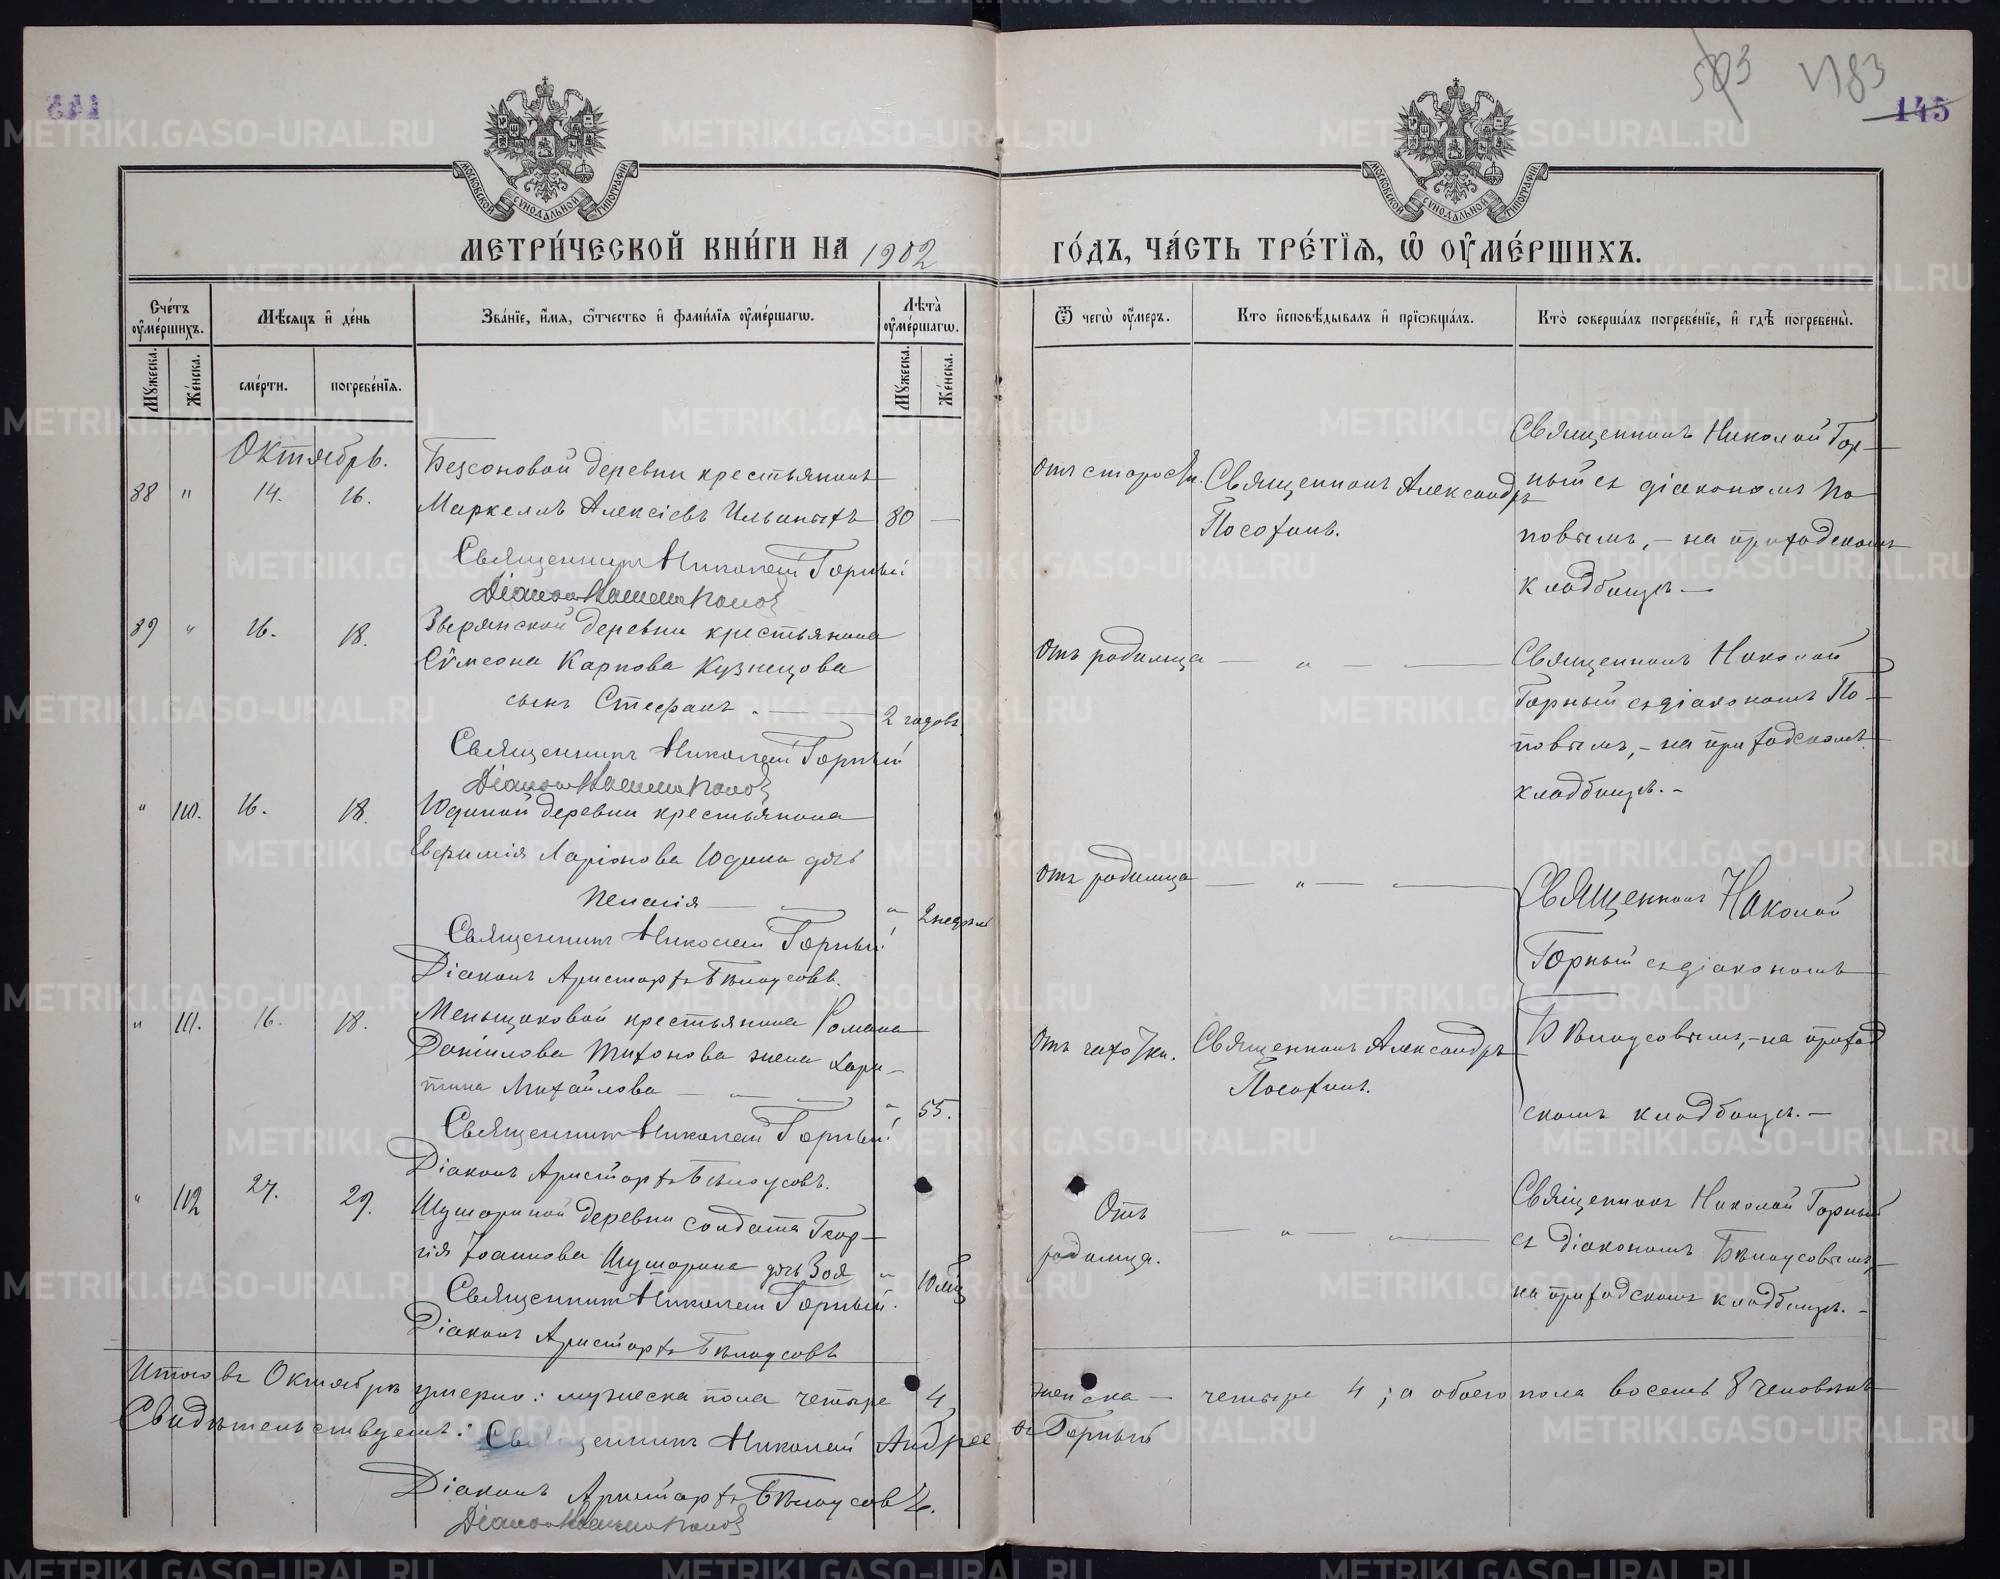 145
593
V183
145
МОСКОВСКОЙ СѴНОДАЛЬНОЙ ТИПОГРАФІИ
МОСКОВСКОЙ СѴНОДАЛЬНОЙ ТИПОГРАФІИ
МЕТРИ́ЧЕСКОЙ КНИ́ГИ НА 1902
ГО́ДЪ, ЧА́СТЬ ТРЕ́ТЇѦ, Ѡ҆ ОУ҆МЕ́РШИХЪ.
Сче́тъ оу҆ме́ршихъ.
Мѣ́сѧцъ и҆ де́нь
Зва́нїе, и҆́мѧ, ѻ҆́тчество и҆ фами́лїѧ оу҆ме́ршагѡ.
Лѣ́та оу҆ме́ршагѡ.
Ѿ чегѡ̀ оу҆́меръ.
Кто̀ и҆сповѣ́дывалъ и҆ прїѡбща́лъ.
Кто̀ соверша́лъ погребе́нїе, и҆ гдѣ̀ погребены̀.
Мꙋ́жеска.
Же́нска.
сме́рти.
погребе́нїѧ.
Мꙋ́жеска.
Же́нска.
Октябрь.
88 " 14. 16.
Безсоновой деревни крестьянинъ
Маркеллъ Алексіевъ Ильиныхъ 80 —
Священникъ Николай Горный
Діаконъ Попов
Отъ старости.
Священникъ Александръ
Посохинъ.
Священникъ Николай Гор-
ный съ діакономъ По
повымъ, – на приходскомъ
кладбищѣ. —
89 " 16. 18.
Зверянской деревни крестьянина
Сѵмеона Карпова Кузнецова
сынъ Стефанъ. — 2 годовъ
Священникъ Николай Горный
Діаконъ Попов
Отъ родимца — " —
Священникъ Николай
Горный съ діакономъ По-
повымъ, – на приходскомъ
кладбищѣ. –
" 110. 16. 18.
Юдиной деревни крестьянина
Евфимія Ларіонова Юдина дочь
Пелагія — " 2 недѣль
Священникъ Николай Горный
Діаконъ Аристархъ Бѣлоусовъ.
Отъ родимца — " —
Священникъ Николай
Горный съ діакономъ
Бѣлоусовымъ, – на приход
скомъ кладбищѣ. —
" 111. 16. 18.
Меньщиковой крестьянина Романа
Даніилова Тихонова жена Хари-
тина Михайлова — " 55.
Священникъ Николай Горный
Діаконъ Аристархъ Бѣлоусовъ.
Отъ чахотки.
Священникъ Александръ
Посохинъ.
" 112 27. 29.
Шушариной деревни солдата Геор-
гія Іоаннова Шушарина дочь Зоя " 10 мѣц
Священникъ Николай Горный.
Діаконъ Аристархъ Бѣлоусовъ
Отъ
родимца.
— " —
Священникъ Николай Горный
съ діакономъ Бѣлоусовымъ,
на приходскомъ кладбищѣ. –
Итого въ Октябрѣ умерло: мужеска пола четыре 4, женска — четыре 4; а обоего пола восемь 8 человѣкъ
Свидѣтельствуемъ: Священникъ Николай Андреевъ Горный
Діаконъ Аристархъ Бѣлоусовъ.
Діаконъ Попов